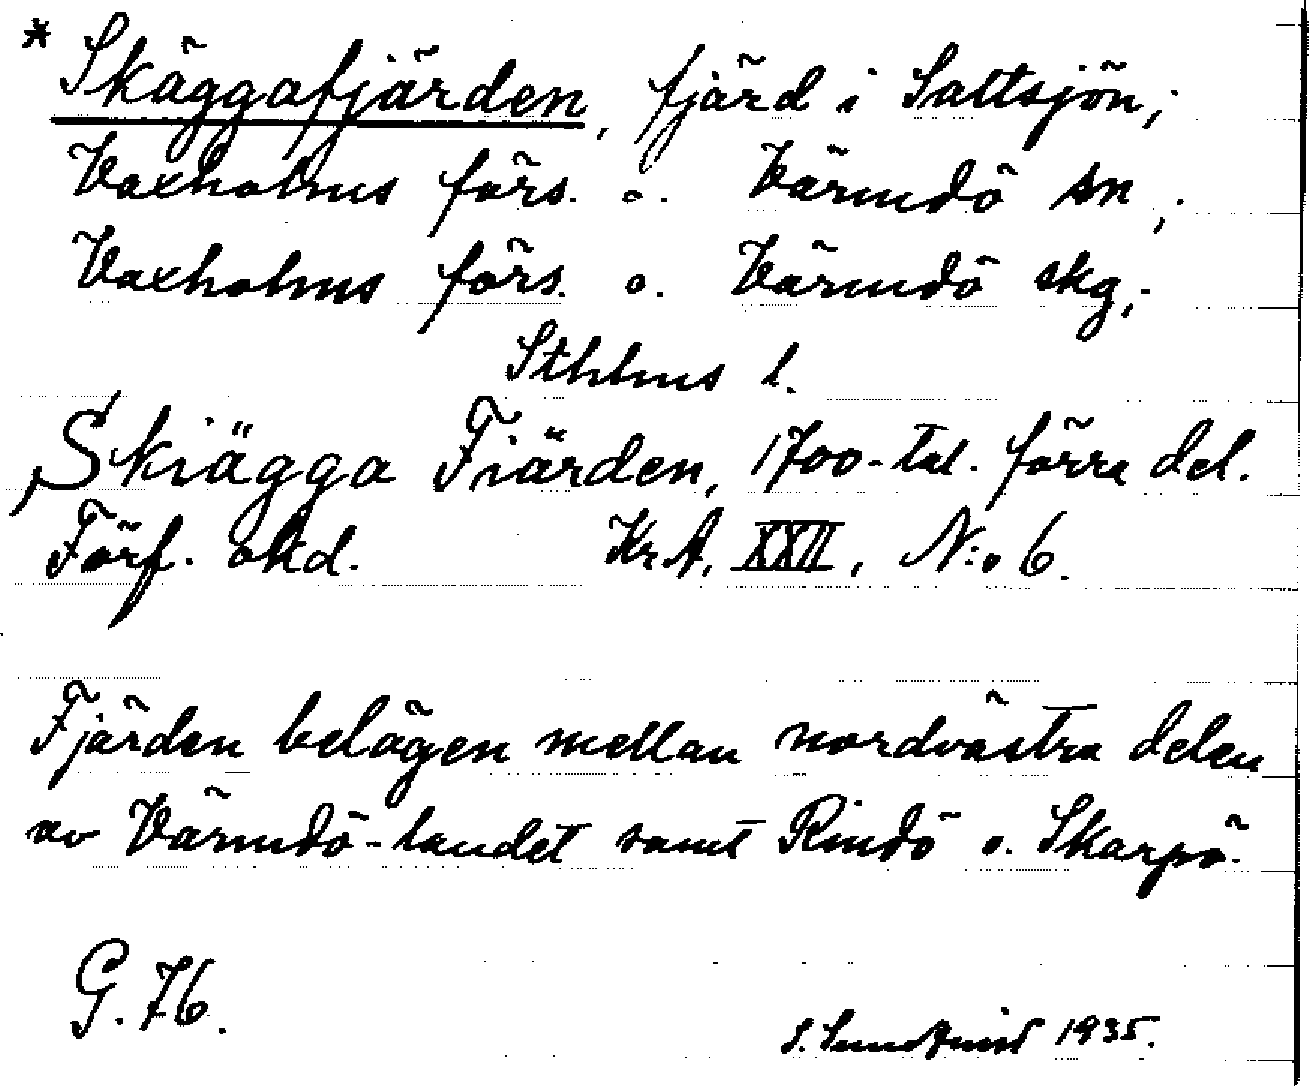 * Skäggafjärden, fjärd i Saltsjön,
Vaxholms förs. o. Värmdö sn,
Vaxholms förs. o. Värmdö skg,
Sthlms l.
Skiägga Fiärden, 1700-tal. förra del.
Förf. okd. Kr.A. XXII, N:o 6.
Fjärden belägen mellan nordvästra delen
av Värmdö-landet samt Rindö o. Skarpö.
G. 76.
S. Sundquist 1935.